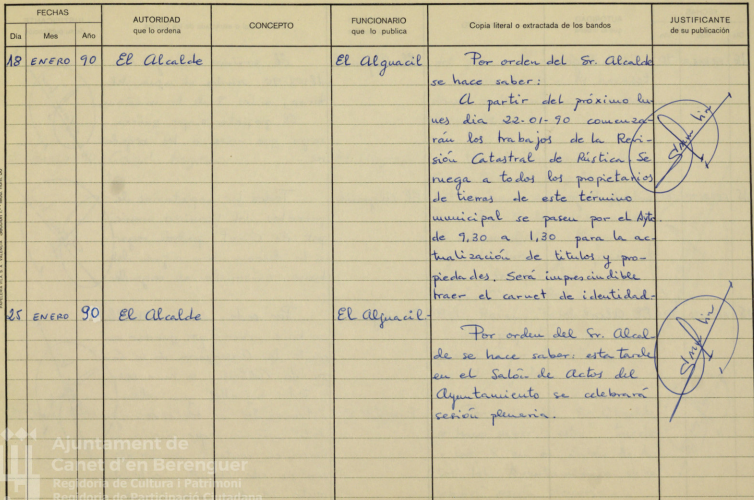 FECHAS
AUTORIDAD
que lo ordena
CONCEPTO
FUNCIONARIO
que lo publica
Copia literal o extractada de los bandos
JUSTIFICANTE
de su publicación
Dia Mes Año
18 ENERO 90 El Alcalde El Alguacil
Por orden del Sr. Alcalde
se hace saber:
A partir del próximo lu-
nes dia 22-01-90 comenza-
rán los trabajos de la Revi-
sión Catastral de Rústica. Se
ruega a todos los propietarios
de tierras de este término
municipal se pasen por el Ayto
de 9,30 a 1,30 para la ac-
tualización de titulos y pro-
piedades. Será imprescindible
traer el carnet de identidad.
25 ENERO 90 El Alcalde El Alguacil
Por orden del Sr. Alcal-
de se hace saber: esta tarde
en el Salón de Actos del
Ayuntamiento se celebrará
sesión plenaria.
Ajuntament de
Canet d'en Berenguer
Regidoria de Cultura i Patrimoni
Regidoria de Participació Ciutadana